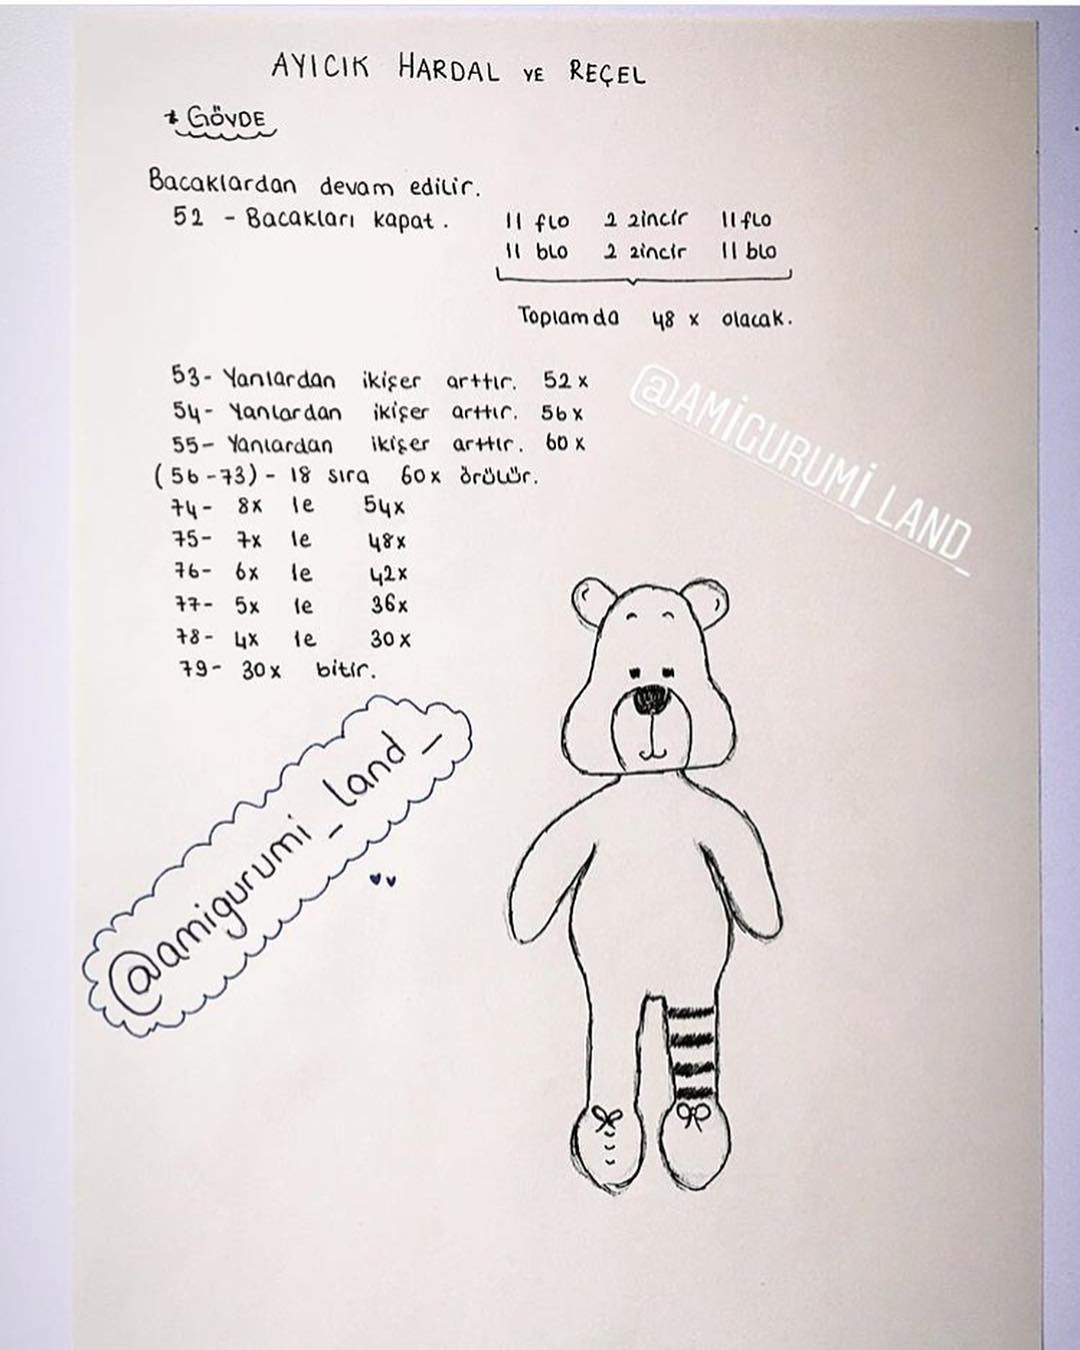 AYICIK HARDAL VE REÇEL
* GÖVDE
Bacaklardan devam edilir.
52 - Bacakları kapat. 11 flo 2 zincir 11 flo
11 blo 2 zincir 11 blo
Toplamda 48 x olacak.
53- Yanlardan ikişer arttır. 52 x
54- Yanlardan ikişer arttır. 56 x
55- Yanlardan ikişer arttır. 60 x
(56-73) - 18 sıra 60x örülür.
74- 8x 1e 54x
75- 7x 1e 48x
76- 6x 1e 42x
77- 5x 1e 36x
78- 4x 1e 30x
79- 30x bitir.
@AMİGURUMİ_LAND_
@amigurumi_land_